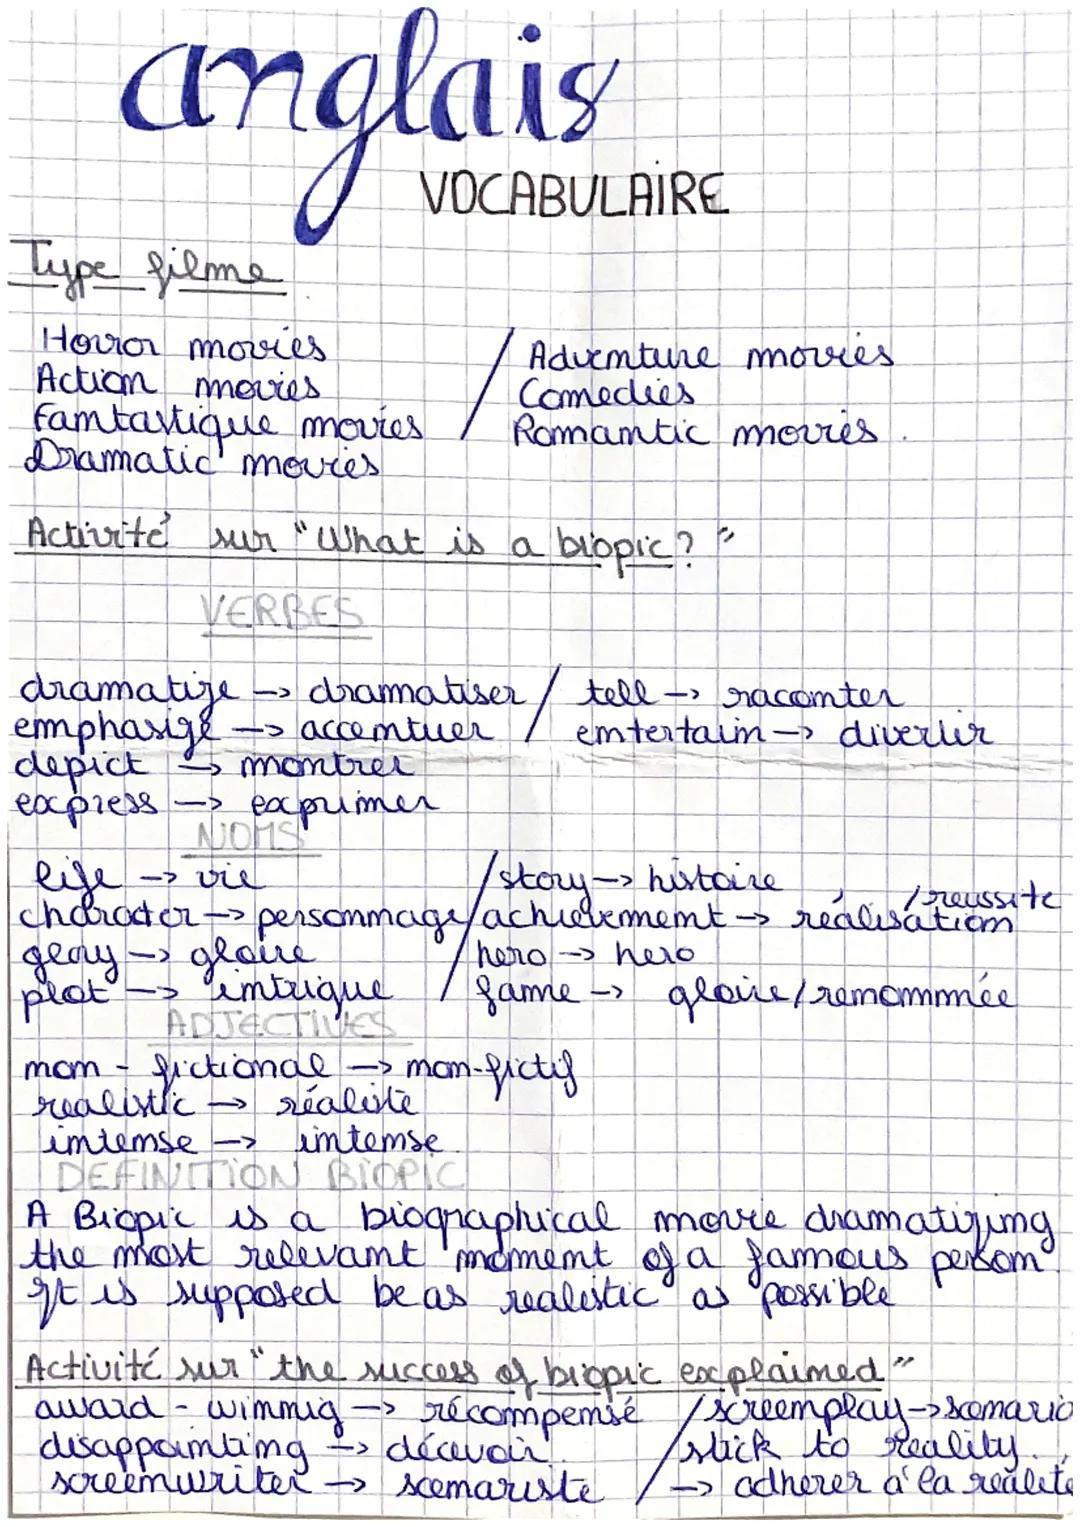 anglais
VOCABULAIRE
Type filme
Horror movies / Adventure movies
Action movies Comedies
Fantastique movies / Romantic movies.
Dramatic movies
Activité sur "What is a biopic?"
VERBES
dramatize -> dramatiser / tell -> raconter
emphasize -> accentuer / entertain -> divertir
depict -> montrer
express -> exprimer
NOMS
life -> vie / story -> histoire
character -> personnage / achievement -> réalisation / reussite
glory -> gloire / hero -> hero
plot -> intrigue / fame -> gloire/renommée
ADJECTIVES
non-fictional -> non-fictif
realistic -> réaliste
intense -> intense
DEFINITION BIOPIC
A Biopic is a biographical movie dramatizing
the most relevant moment of a famous person.
It is supposed be as realistic as possible
Activité sur "the success of biopic explained"
award-winnig -> récompensé / screenplay -> scenario
disappointing -> décevoir. / stick to reality.
screenwriter -> scenariste / -> adhérer à la réalité